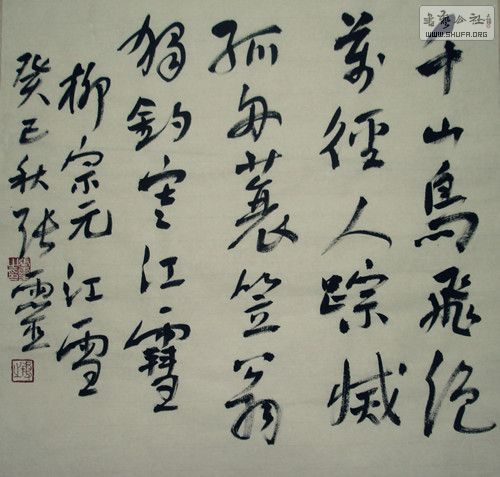 千山鳥飛絶
萬徑人踪滅
孤舟蓑笠翁
獨釣寒江雪
柳宗元江雪
癸巳秋張靈
书法公社
WWW.SHUFA.ORG